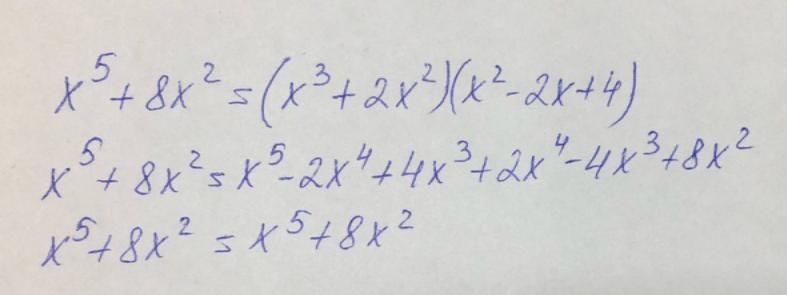 x⁵+8x²=(x³+2x²)(x²-2x+4)
x⁵+8x²=x⁵-2x⁴+4x³+2x⁴-4x³+8x²
x⁵+8x²=x⁵+8x²